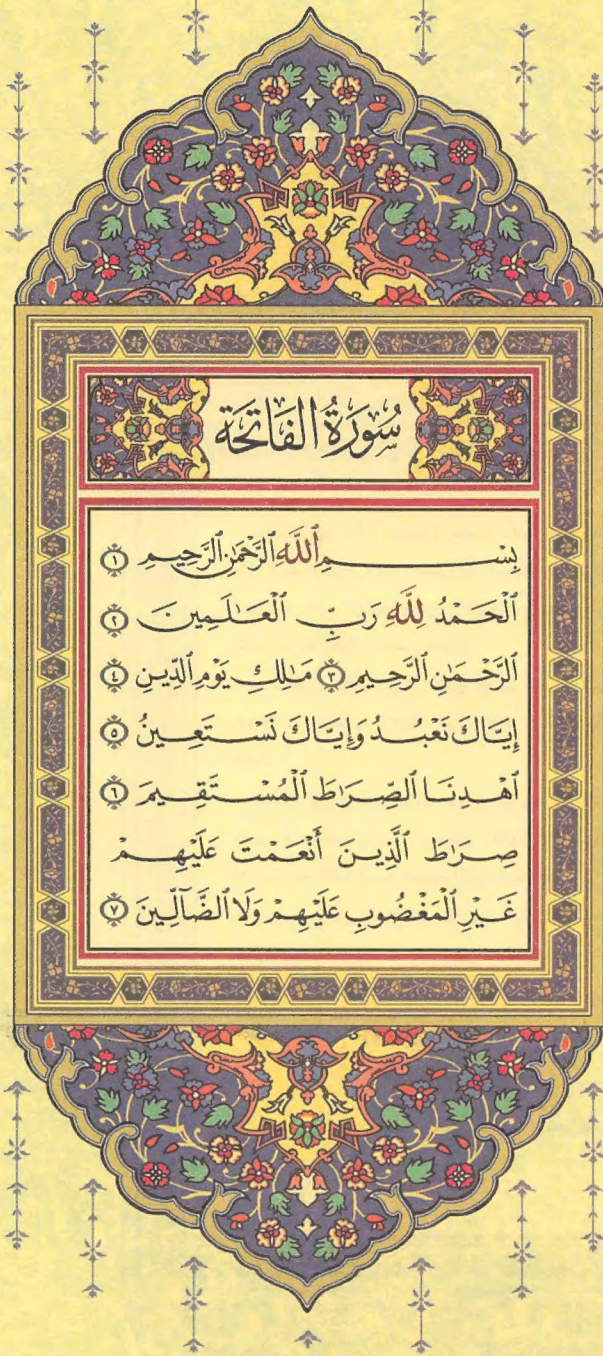 سُورَةُ الفَاتِحَة
بِسْمِ ٱللَّهِ ٱلرَّحْمَٰنِ ٱلرَّحِيمِ ١
ٱلْحَمْدُ لِلَّهِ رَبِّ ٱلْعَٰلَمِينَ ٢
ٱلرَّحْمَٰنِ ٱلرَّحِيمِ ٣ مَٰلِكِ يَوْمِ ٱلدِّينِ ٤
إِيَّاكَ نَعْبُدُ وَإِيَّاكَ نَسْتَعِينُ ٥
ٱهْدِنَا ٱلصِّرَٰطَ ٱلْمُسْتَقِيمَ ٦
صِرَٰطَ ٱلَّذِينَ أَنْعَمْتَ عَلَيْهِمْ
غَيْرِ ٱلْمَغْضُوبِ عَلَيْهِمْ وَلَا ٱلضَّآلِّينَ ٧